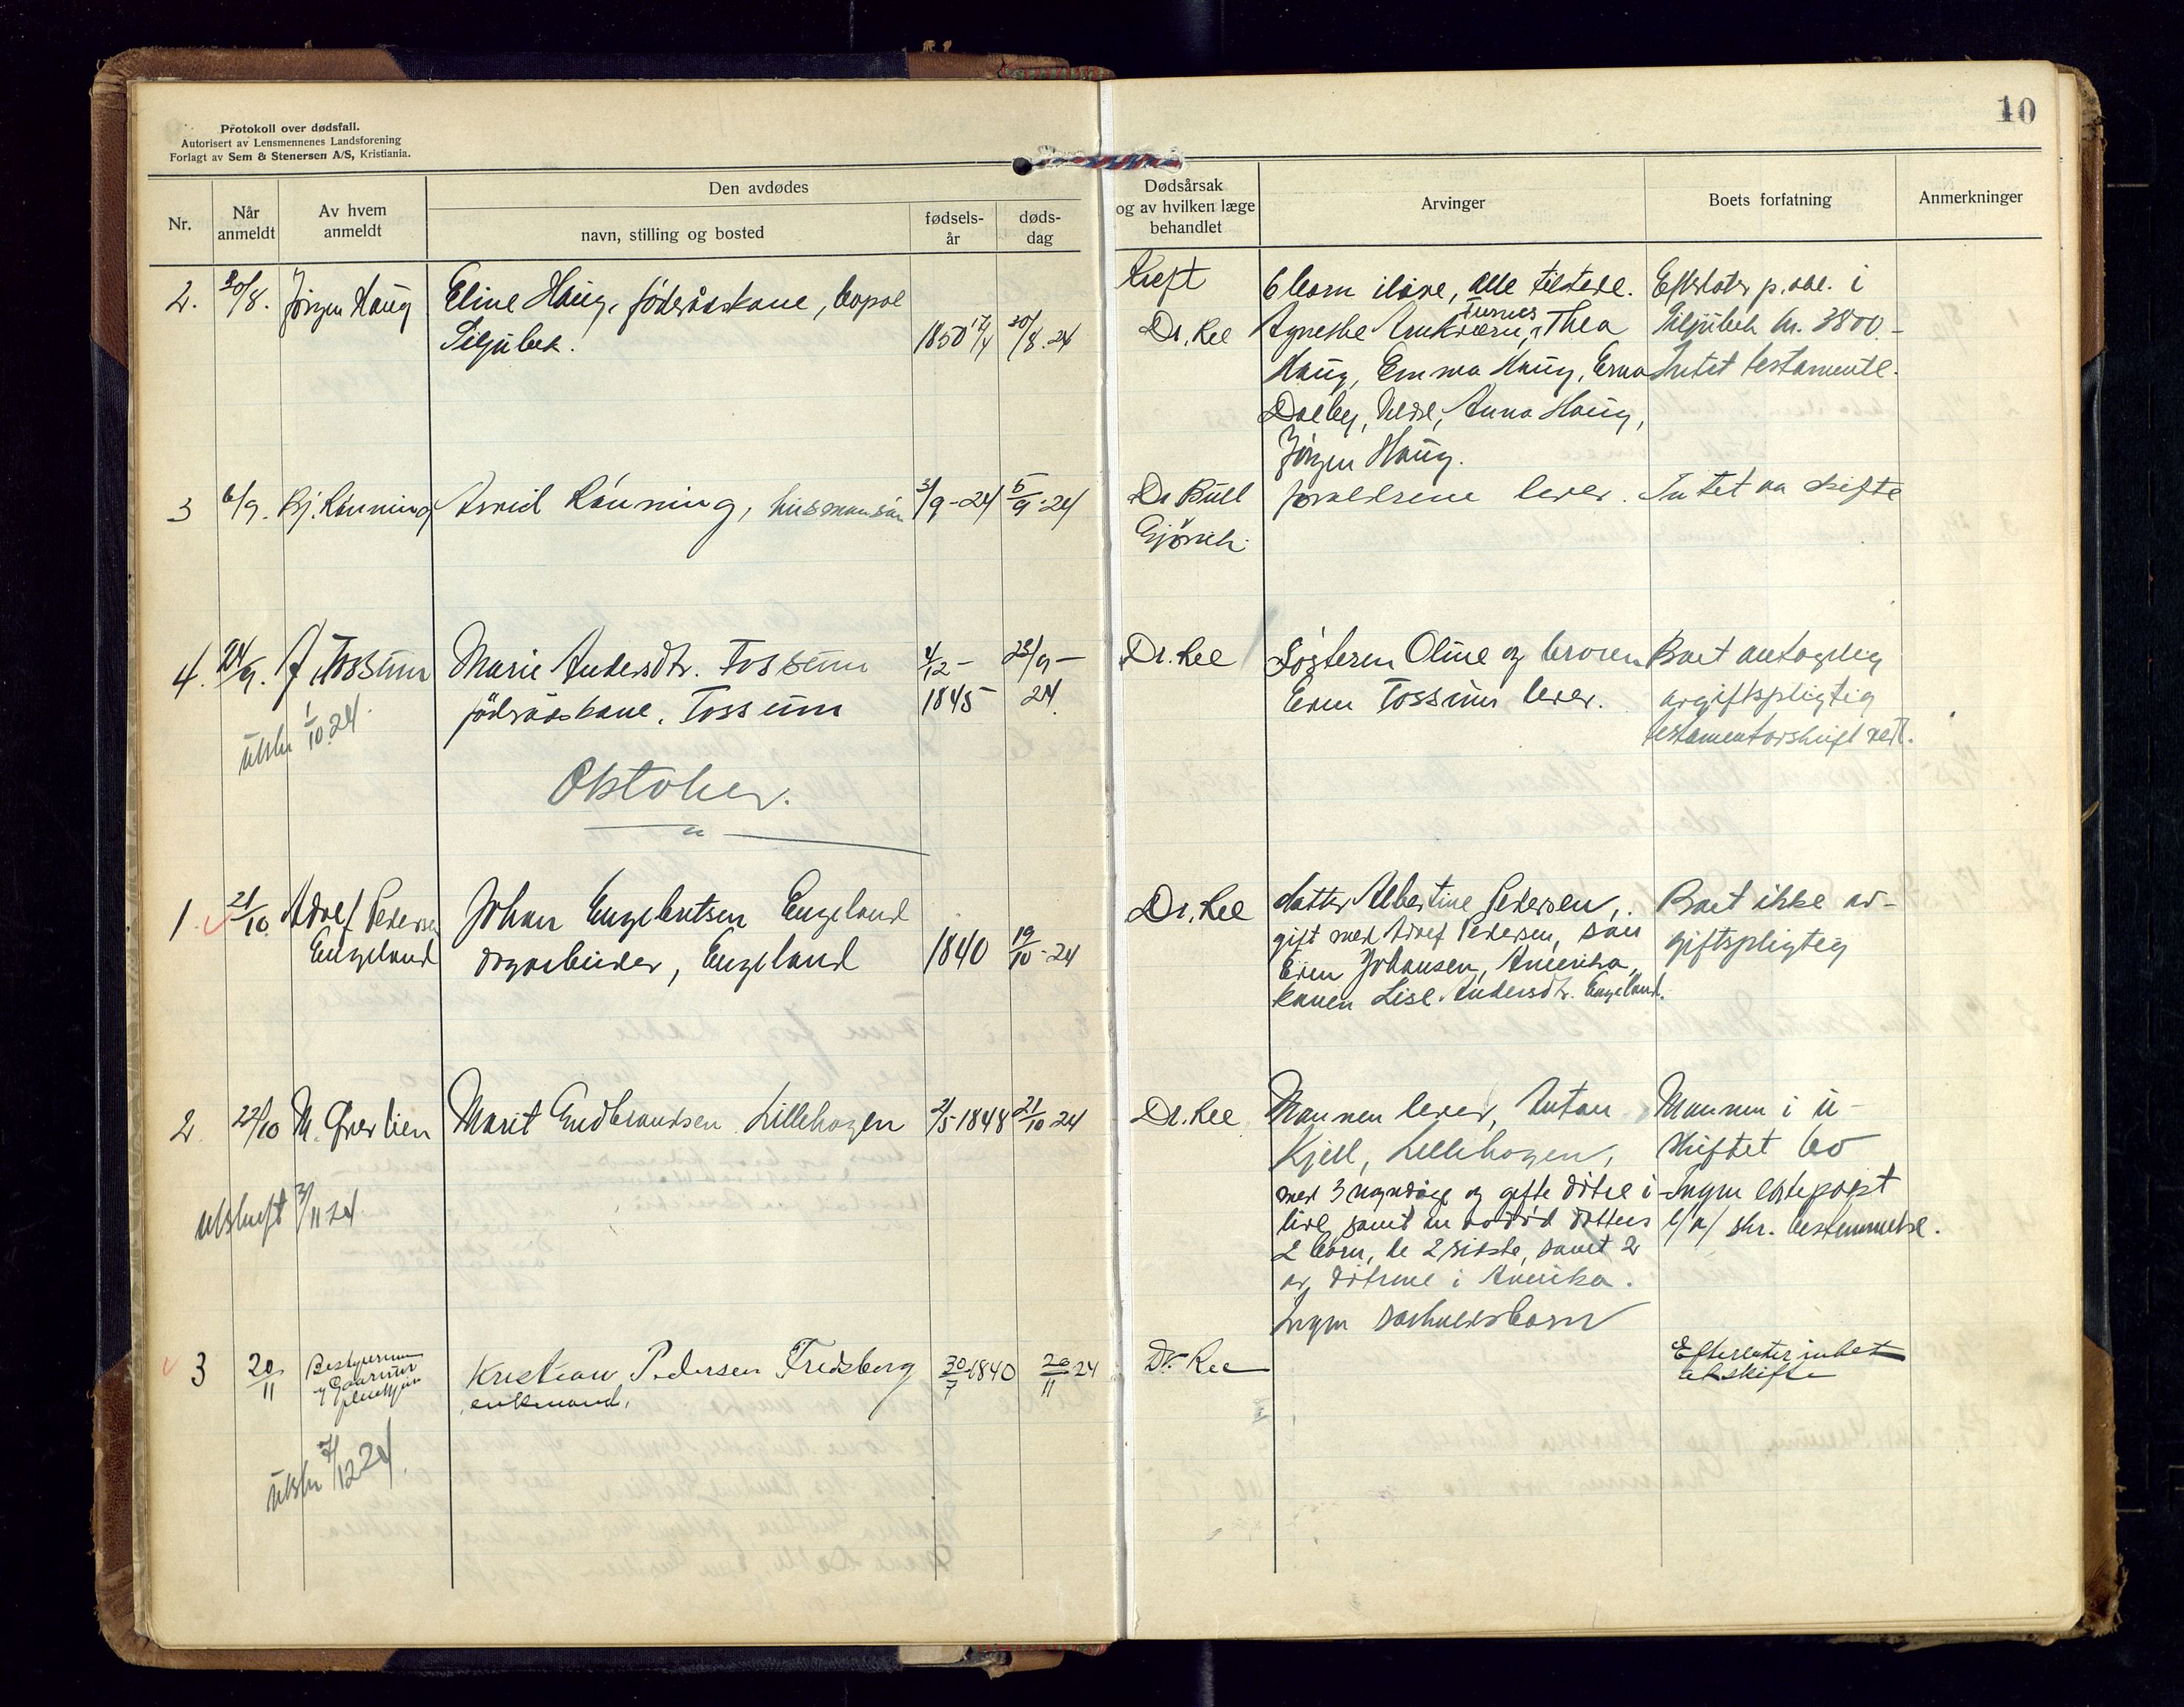 10
Protokoll over dødsfall.
Autorisert av Lensmennenes Landsforening
Forlagt av Sem & Stenersen A/S, Kristiania.
Nr.
Når anmeldt
Av hvem anmeldt
Den avdødes
navn, stilling og bosted
fødsels-år
døds-dag
Dødsårsak og av hvilken læge behandlet
Arvinger
Boets forfatning
Anmerkninger
2. 20/8. Jörgen Haug Eline Haug, föderåðskone,
1850 17/4 20/8.24
Kreft
Dr. Lee
6 born ilive, alle tilstede.
Agnethe Thea
Haug, Emma Haug, Erna
Dælby, Anna Haug,
Jörgen Haug.
i
kr. 3800.-
Intet testamente.
3 6/9. Bj. Rönning Rönning,
3/9-24 5/9-24
Dr Bull
Gjövik.
foreldrene lever. Intet aa skifte
4. 24/9. J. Tossum Marie Andersdtr. Tossum
föderåðskone, Tossum
4/12-1845 23/9-24
Dr. Lee
Søsteren Oline og broren
Even Tossum lever.
Boet antagelig
avgiftspligtig
utskr 1/10.24.
Oktober.
1. 21/10. Adolf Pedersen
Engeland
Johan Engebretsen Engeland
dagarbeider, Engeland
1840 19/10-24
Dr. Lee
datter Albertine Pedersen,
gift med Adolf Pedersen, sön
Even Johansen, Amerika,
konen Lise Andersdtr. Engeland.
Boet ikke av-
giftspligtig
2. 22/10 M. Överlien Marit Gudbrandsen Lillehagen 2/5-1848 21/10-24
Dr. Lee
Mannen lever, Anton
Kjell, Lillehagen,
med 3 myndige og gifte dötre i
live, samt en avdöd datters
2 born, de 2 sidste, samt 2
av dötrene i Amerika.
Ingen
Mannen i u-
skiftet bo
Ingen ektepagt
e/a/ skr. bestemmelse.
utskrift 3/11 24
3 20/11 Bestyrerinne
Kristian Pedersen Fredsberg
enkemand,
30/7 1840 20/11 24
Dr. Lee
Efterlater intet
at skifte
utskr 7/12 24.